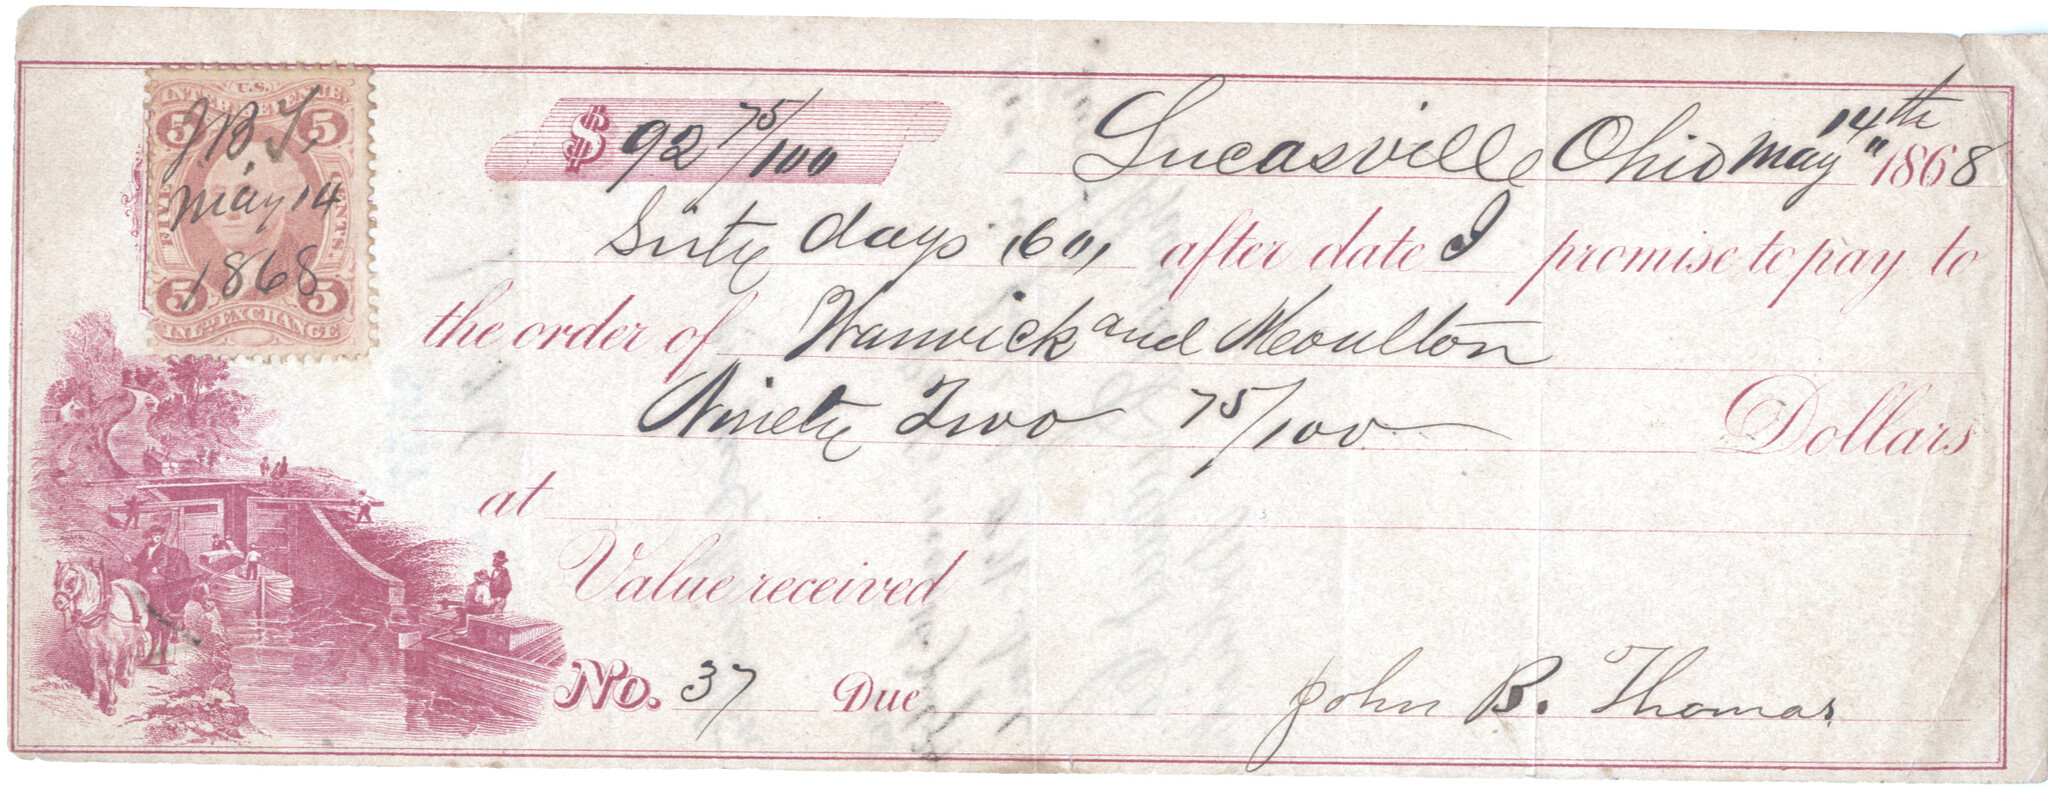 U.S.
INTER. REVENUE
5 5
J B. T.
May 14
1868
FIVE CENTS.
5 5
INL. EXCHANGE
$ 92 75/100
Lucasville Ohio May 14th 1868
Sixty days (60) after date I promise to pay to
the order of Warwick and Moulton
Ninety Two 75/100 Dollars
at
Value received
No. 37 Due John B. Thomas